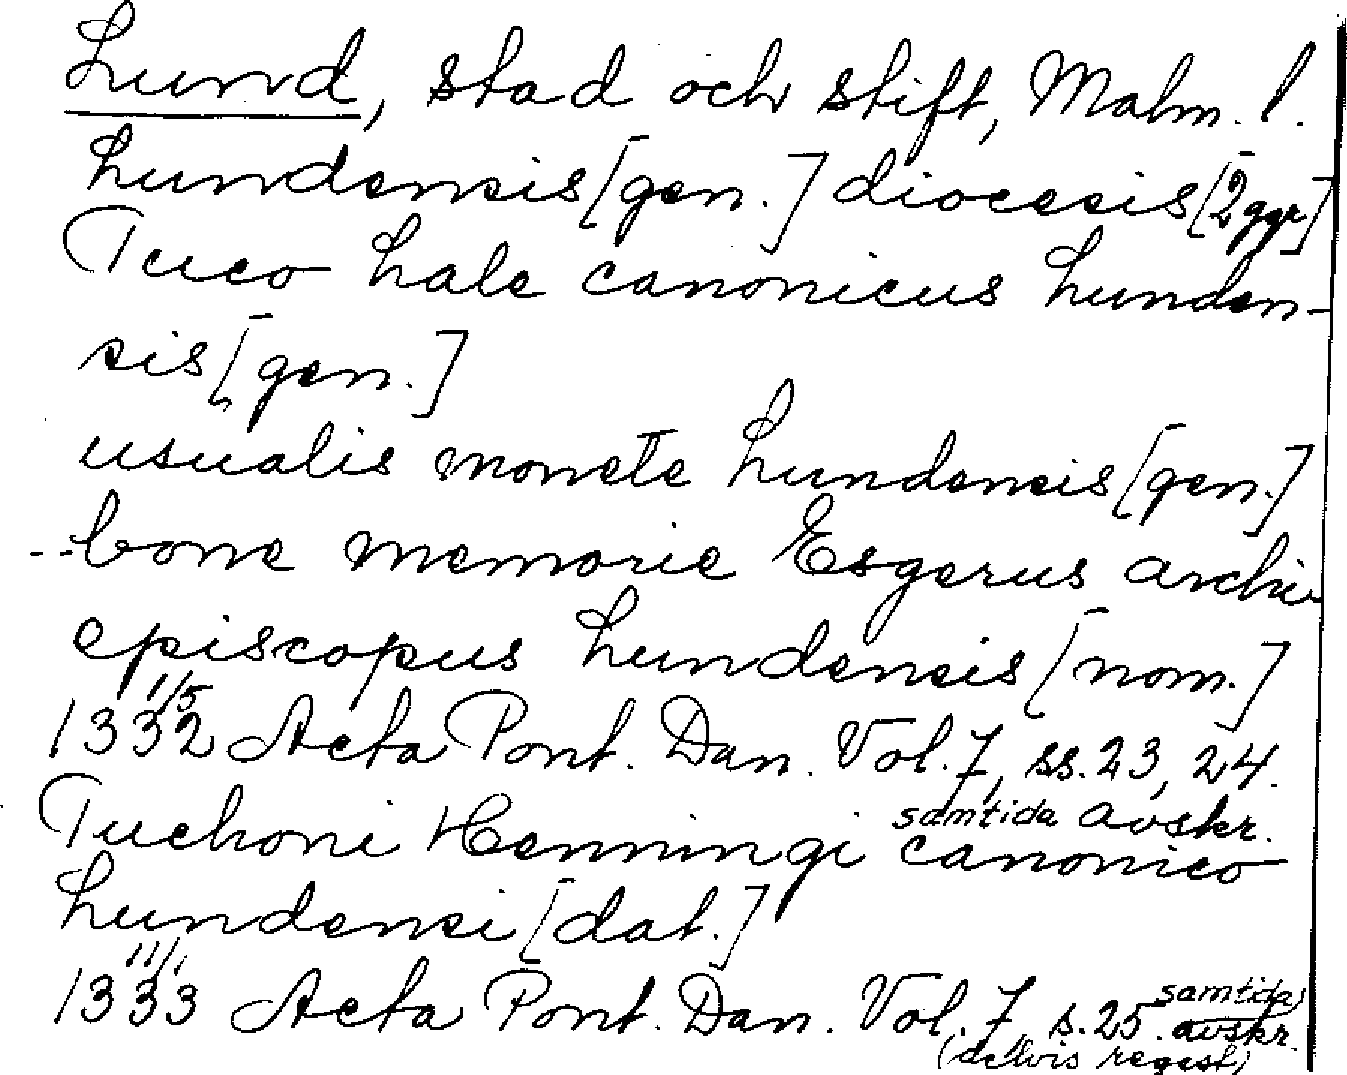 Lund, stad och stift, Malm. l.
Lundensis [gen.] diocesis [2 ggr]
Tuco Hale canonicus Lunden-
sis [gen.]
usualis monete Lundensis [gen.]
--bone memorie Esgerus archi-
episcopus Lundensis [nom.]
1332 1/5 Acta Pont. Dan. Vol. 7, ss. 23, 24.
samtida avskr.
Tuchoni Henningi canonico
Lundensi [dat.]
1333 11/1 Acta Pont. Dan. Vol. 7, s. 25. samtida avskr.
(delvis regest)